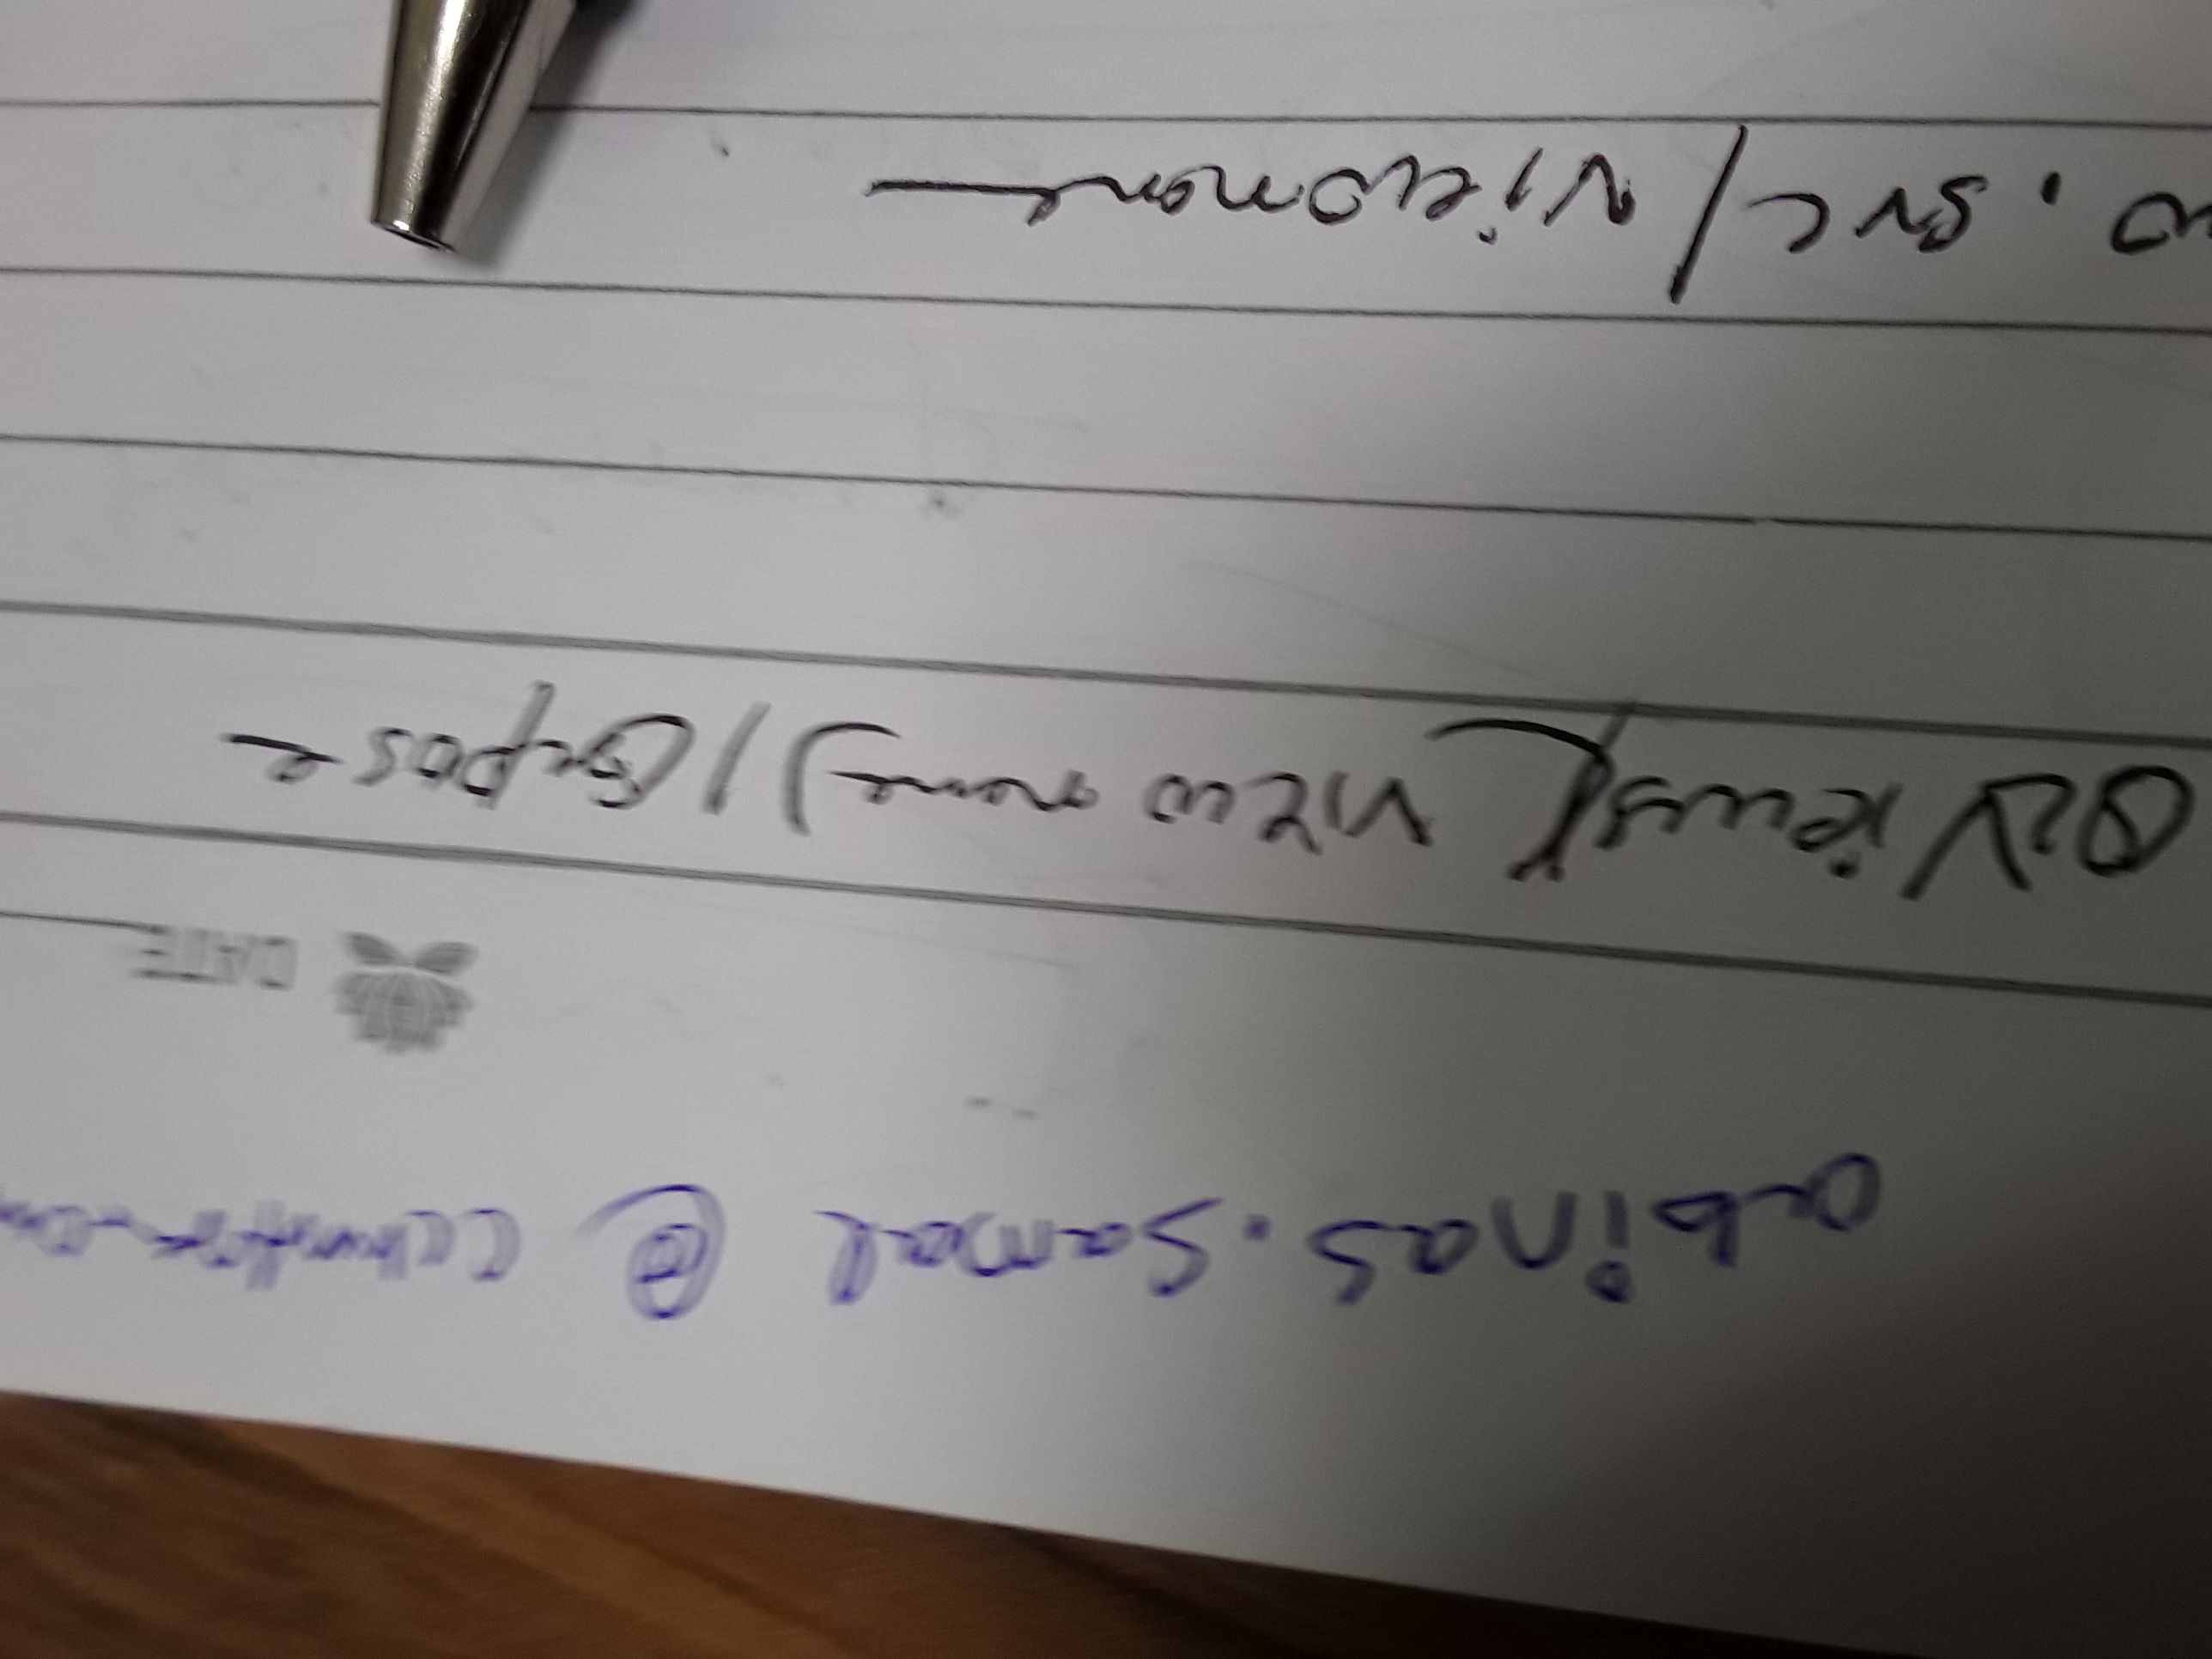 abinas.samal@
DATE
QlViewsf(viewname)//Expose
.svc/viewname